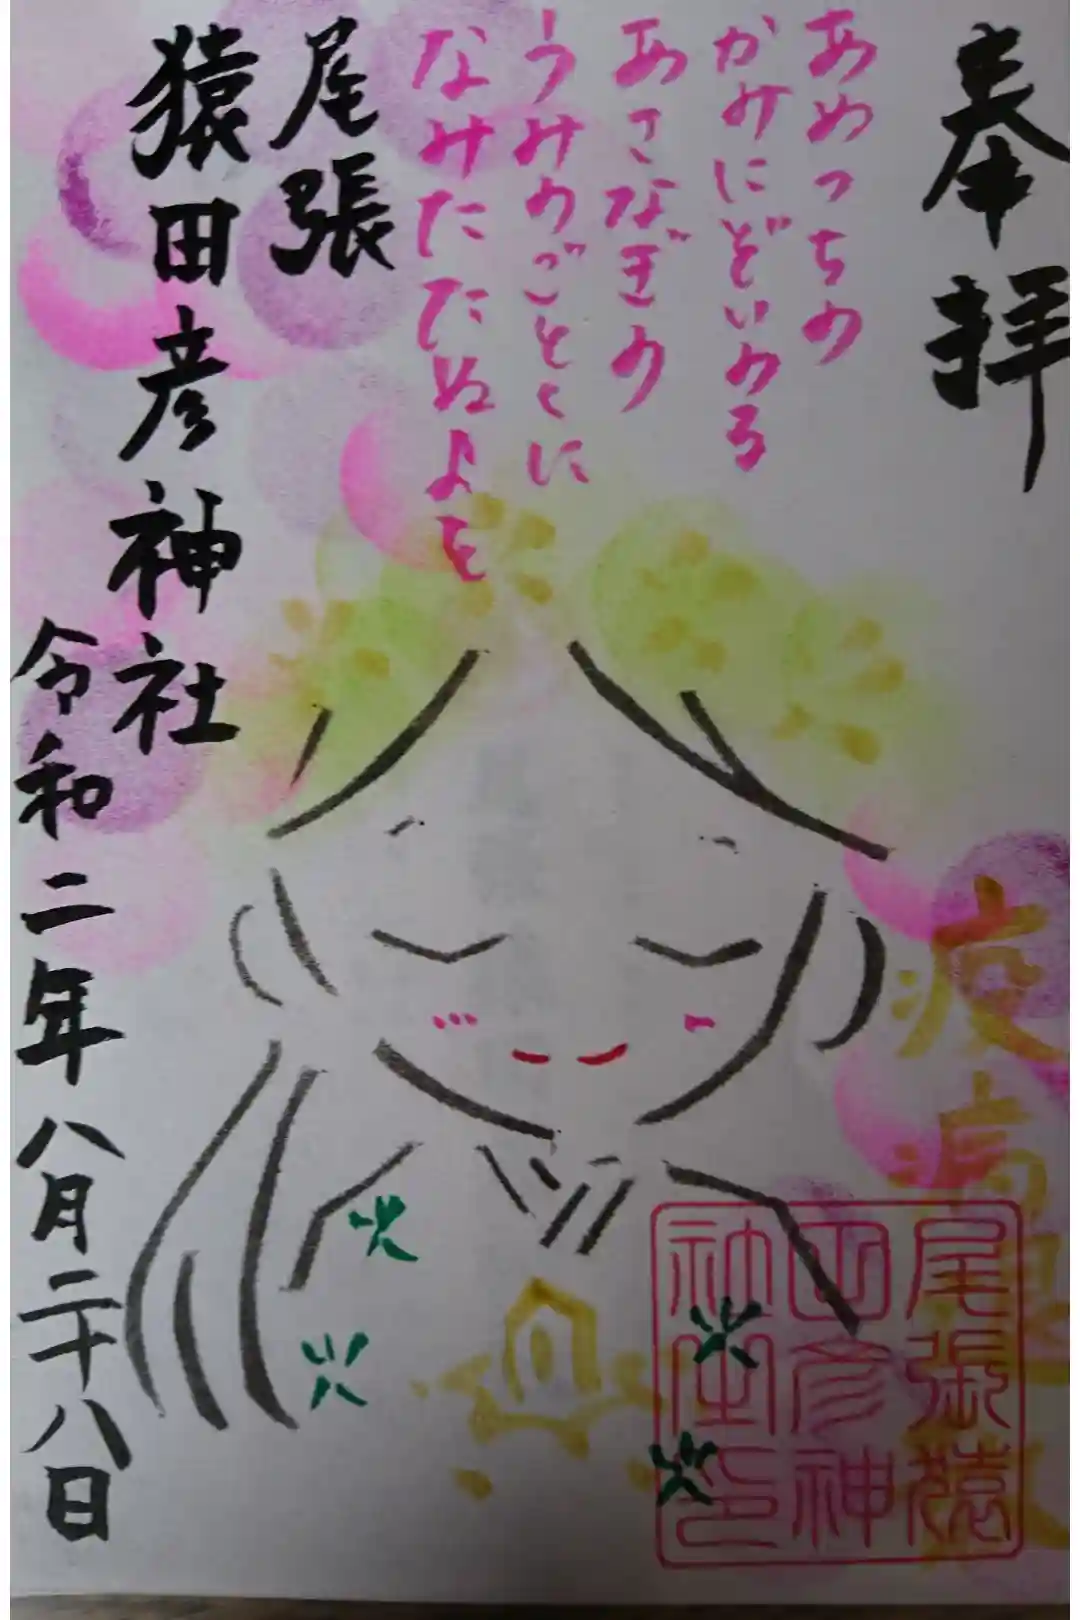 奉拝
あめつちの
かみにぞいのる
あさなぎの
うみのごとくに
なみたたぬよを
尾張
猿田彦神社
令和二年八月二十八日
疫病
尾張猿
田彦神
社之印